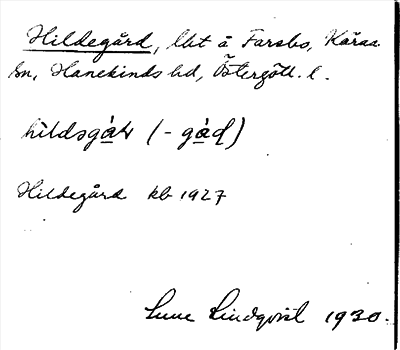 Hildegård, lht å Farsbo, Kärna
sn, Hanekinds hd, Östergötl. l.
hìldsgá̱r (-gá̱ɖ)
Hildegård kb 1927
Sune Lindqvist 1930.